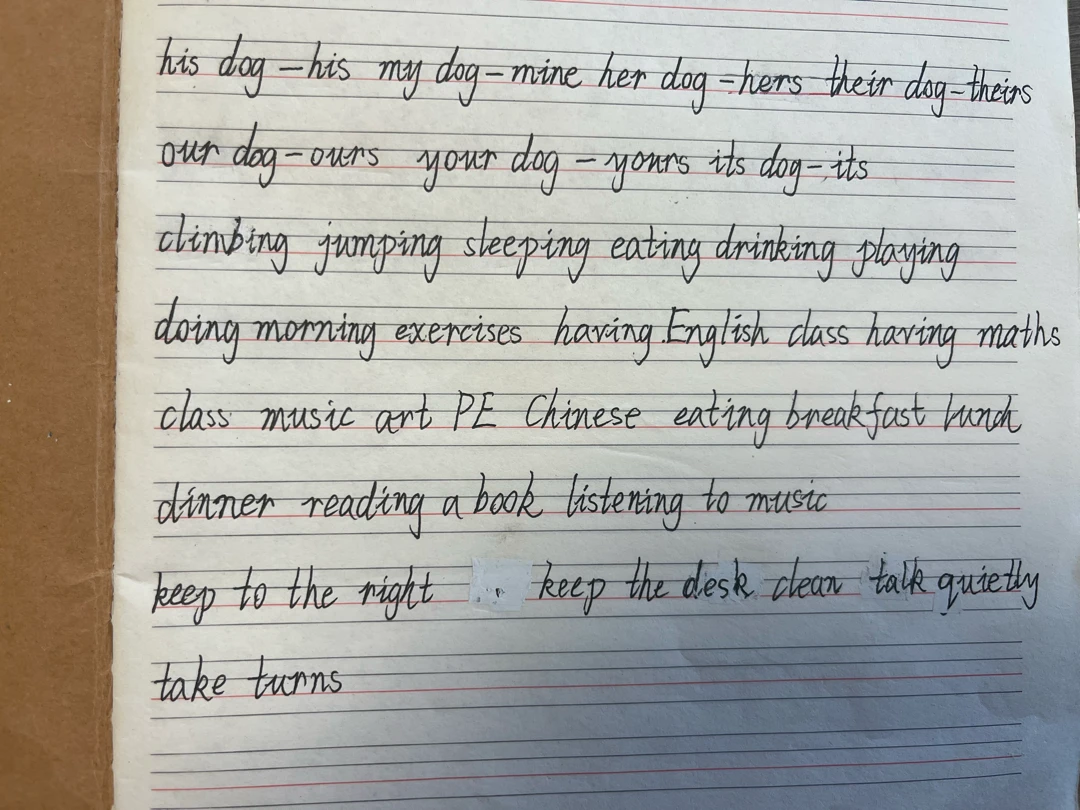 his dog – his my dog – mine her dog – hers their dog – theirs
our dog – ours your dog – yours its dog – its
climbing jumping sleeping eating drinking playing
doing morning exercises having English class having maths
class music art PE Chinese eating breakfast lunch
dinner reading a book listening to music
keep to the right keep the desk clean talk quietly
take turns